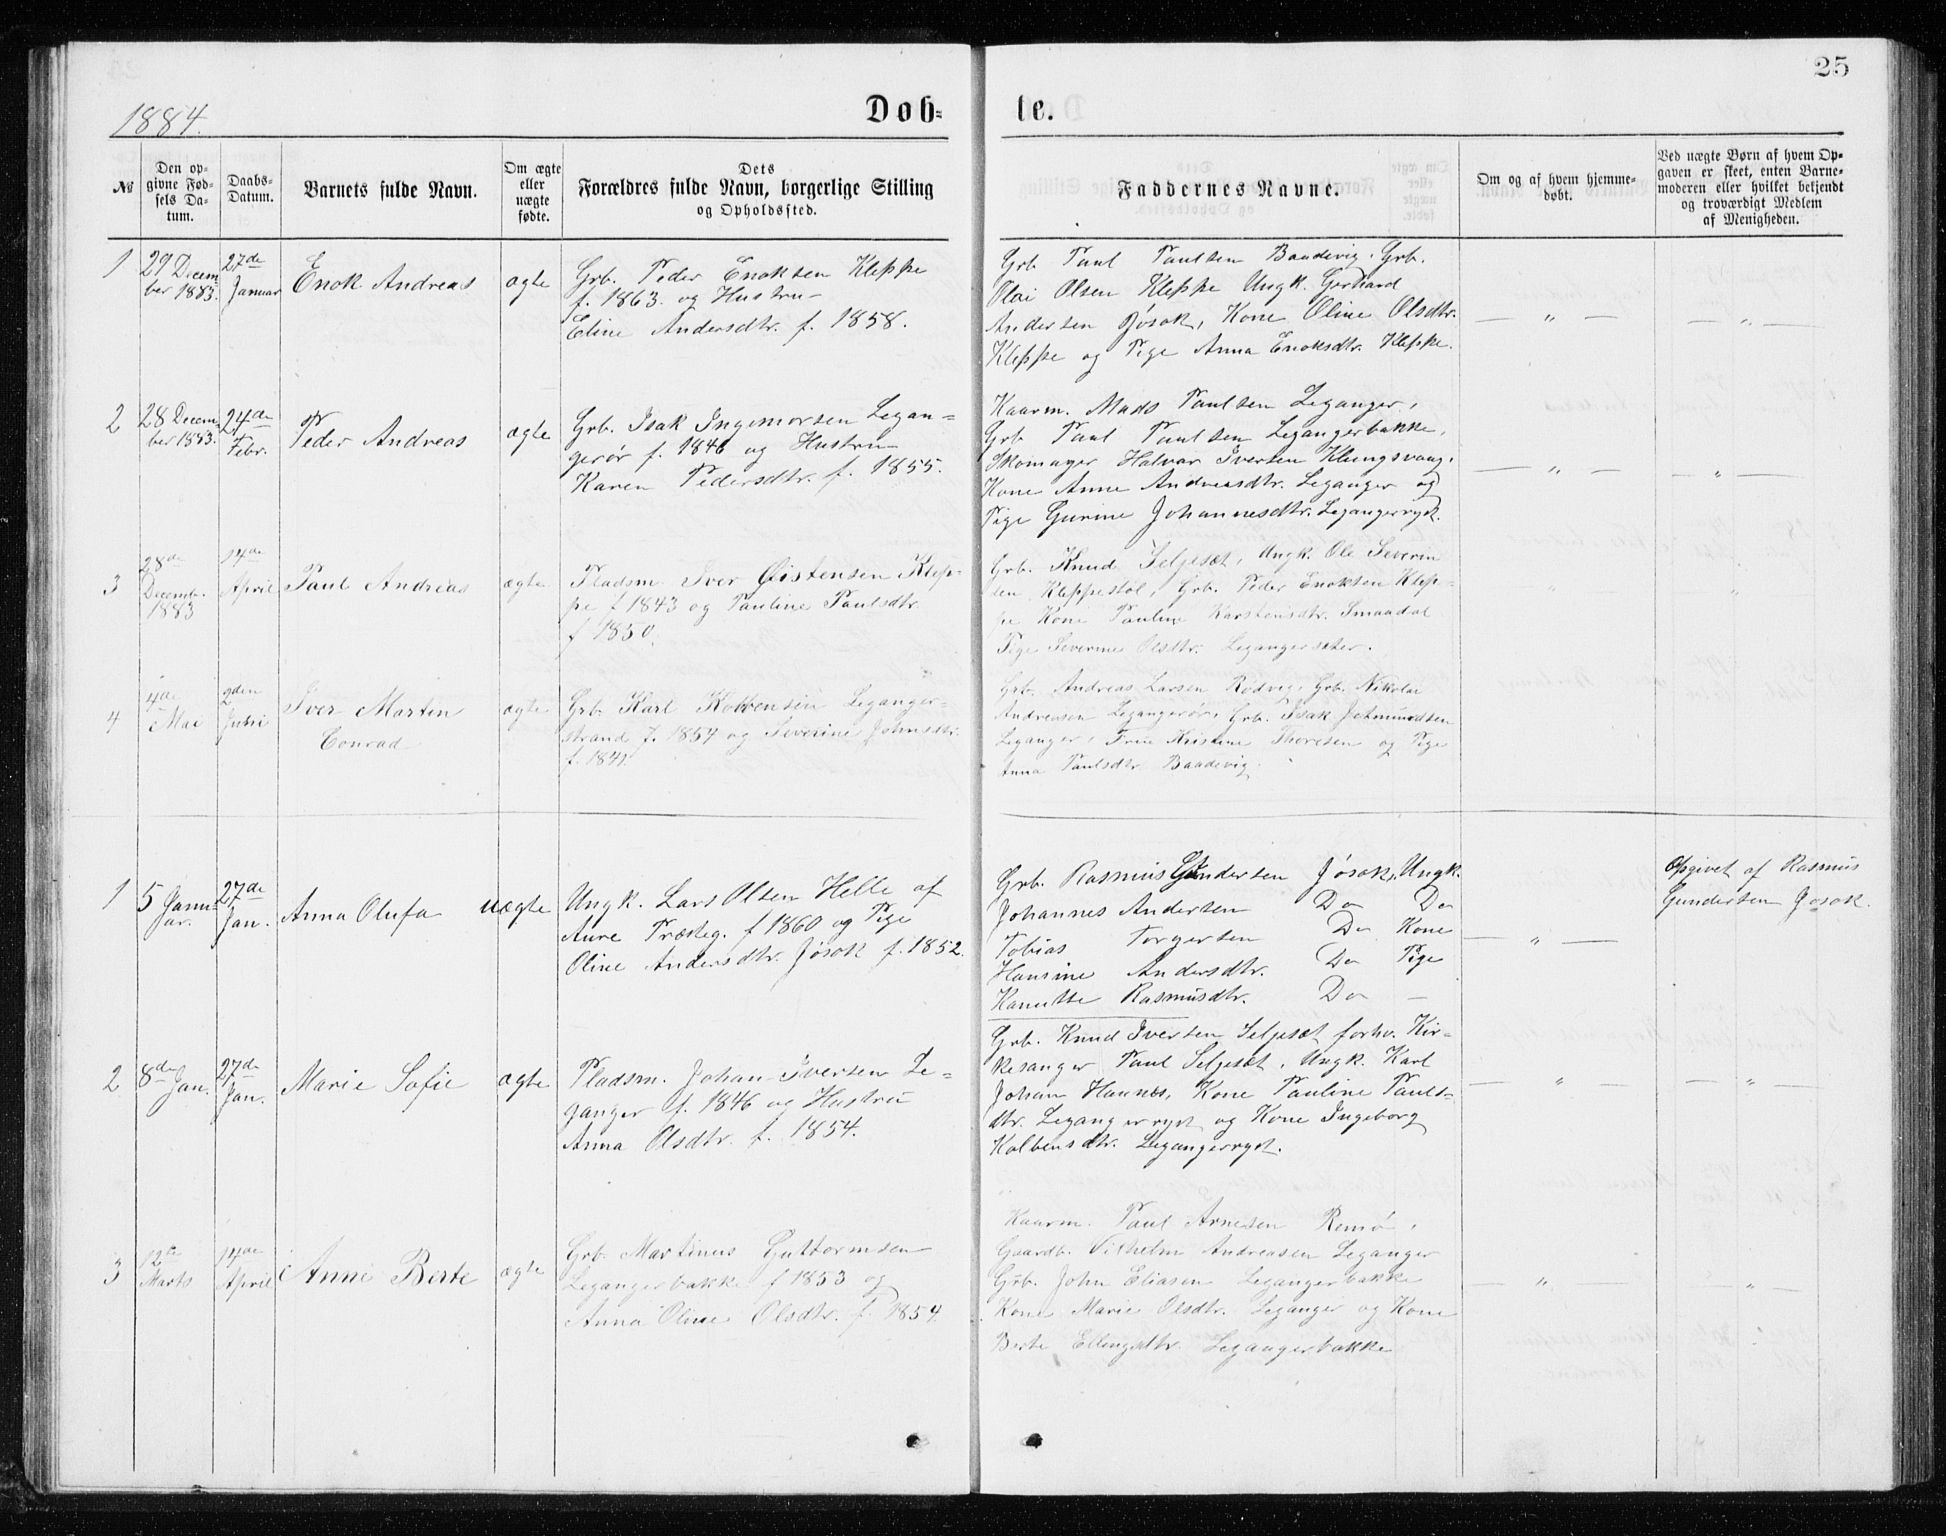 25
1884.
Døb-
te.
№
Den op-
givne Fød-
sels Da-
tum.
Daabs-
Datum.
Barnets fulde Navn.
Om ægte
eller
uægte
fødte.
Dets
Forældres fulde Navn, borgerlige Stilling
og Opholdssted.
Faddernes Navne.
Om og af hvem hjemme-
døbt.
Ved uægte Børn af hvem Op-
gaven er skeet, enten Barne-
moderen eller hvilket bekjendt
og troværdigt Medlem
af Menigheden.
1
29 Decem
ber 1883.
27de
Januar
Enok Andreas
ægte
Grb. Peder Enoksen Kleppe
f. 1863. og Hustru
Eline Andersdtr. f. 1858.
Grb Paul Paulsen Baadsvig. Grb.
Olai Olsen Kleppe Ungk. Gerhard
Andersen Jøsok, Kone Oline Olsdtr.
Kleppe og Pige Anna Enoksdtr. Kleppe.
— „ —
— „ —
2
28 Decem
ber 1883.
24de
Febr.
Peder Andreas
ægte
Grb. Isak Ingemorsen Legan-
gerør f. 1846 og Hustru
Karen Pedersdtr. f. 1855.
Kaarm. Mads Paulsen Leganger,
Grb Paul Paulsen Legangerbakke,
Skomager Halvar Iversen Klungsvaag.
Kone Anne Andreasdtr. Leganger og
Pige Gurine Johannesdtr. Legangerryst.
— „ —
— „ —
3
28de
Decemb.
1883
14de
April
Paul Andreas
ægte
Pladsm. Iver Øistensen Klep-
pe f 1843 og Pauline Paulsdtr.
f 1850.
Grb. Knud Seljesæt, Ungk. Ole Severin
sen Kleppestøl, Grb. Peder Enoksen Klep-
pe Kone Pauline Karstensdtr. Smaadal
Pige Severine Olsdtr. Legangersæter.
„
„
4
4de
Mai
2den
Juni
Iver Martin
Conrad
ægte
Grb. Karl Leganger-
strand f. 1854 og Severine Johnsdtr.
Grb. Andreas Larsen Rødvig, Grb. Nikolai
Andreasen Legangerør, Grb. Isak Jetmundsen
Leganger, Frue Kristine Thoresen og Pige
Anna Paulsdtr. Baadsvig.
1
5 Janu-
ar.
27de
Jan.
Anna Olufa
uægte
Ungk. Lars Olsen Helle af
Aure Præsteg. f 1860 og Pige
Oline Andersdtr. Jøsok f. 1852.
Grb. Rasmus Gundersen Jøsok, Ungk.
Johannes Andersen Do Do
Tobias Torgersen Do Kone
Hansine Andersdtr. Do Pige
Kanutte Rasmusdtr. Do —
— „ —
Opgivet af Rasmus
Gundersen Jøsok.
2
8de
Jan.
27de
Jan.
Marie Sofie
ægte
Pladsm. Johan Iversen Le-
ganger f. 1846 og Hustru
Anna Olsdtr. f. 1854.
Grb. Knud Iversen Seljesæt forhv. Kir-
kesanger Paul Seljesæt, Ungk. Karl
Johan Hannes, Kone Pauline Pauls-
dtr. Legangerryst og Kone Ingeborg
Kolbensdtr. Legangerryst.
— „ —
— „ —
3
12te
Marts
14de
April
Anne Berte
ægte
Grb. Martinus Guttormsen
Legangerbakke f 1853 og
Anna Oline Olsdtr. f. 1854.
Kaarm. Paul Arnesen Remø,
Gaardb. Vilhelm Andreasen Leganger
Grb. John Eliasen Legangerbakke
Kone Marie Olsdtr. Leganger og Kone
Berte Ellingsdtr. Legangerbakke
— „ —
— „ —